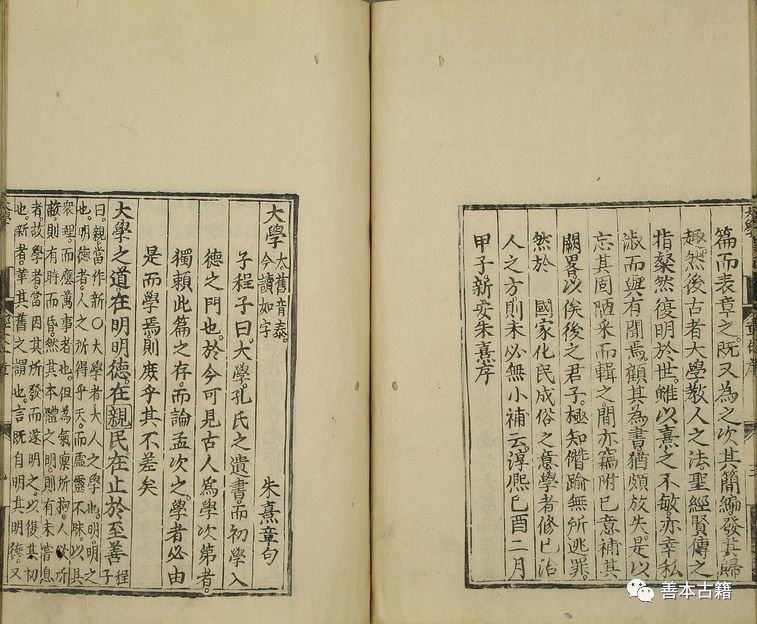 篇而表章之。既又為之次其簡編發其歸
趣。然後古者大學教人之法。聖經賢傳之
指。粲然復明於世。雖以熹之不敏。亦幸私
淑而與有聞焉。顧其為書猶頗放失。是以
忘其固陋。采而輯之。間亦竊附己意。補其
闕畧。以俟後之君子。極知僭踰無所逃罪。
然於 國家化民成俗之意。學者修己治
人之方。則未必無小補云。淳熙己酉二月
甲子。新安朱熹序
大學 大舊音泰。今讀如字 朱熹章句
子程子曰。大學。孔氏之遺書。而初學入
德之門也。於今可見古人為學次第者。
獨賴此篇之存。而論孟次之。學者必由
是而學焉。則庶乎其不差矣
大學之道。在明明德。在親民。在止於至善 程子
曰。親。當作新○大學者。大人之學也。明。明之
也。明德者。人之所得乎天。而虛靈不昧。以具
眾理。而應萬事者也。但為氣稟所拘。人欲所
蔽。則有時而昏。然其本體之明。則有未嘗息
者。故學者當因其所發而遂明之。以復其初
也。新者。革其舊之謂也。言既自明其明德。又
善本古籍